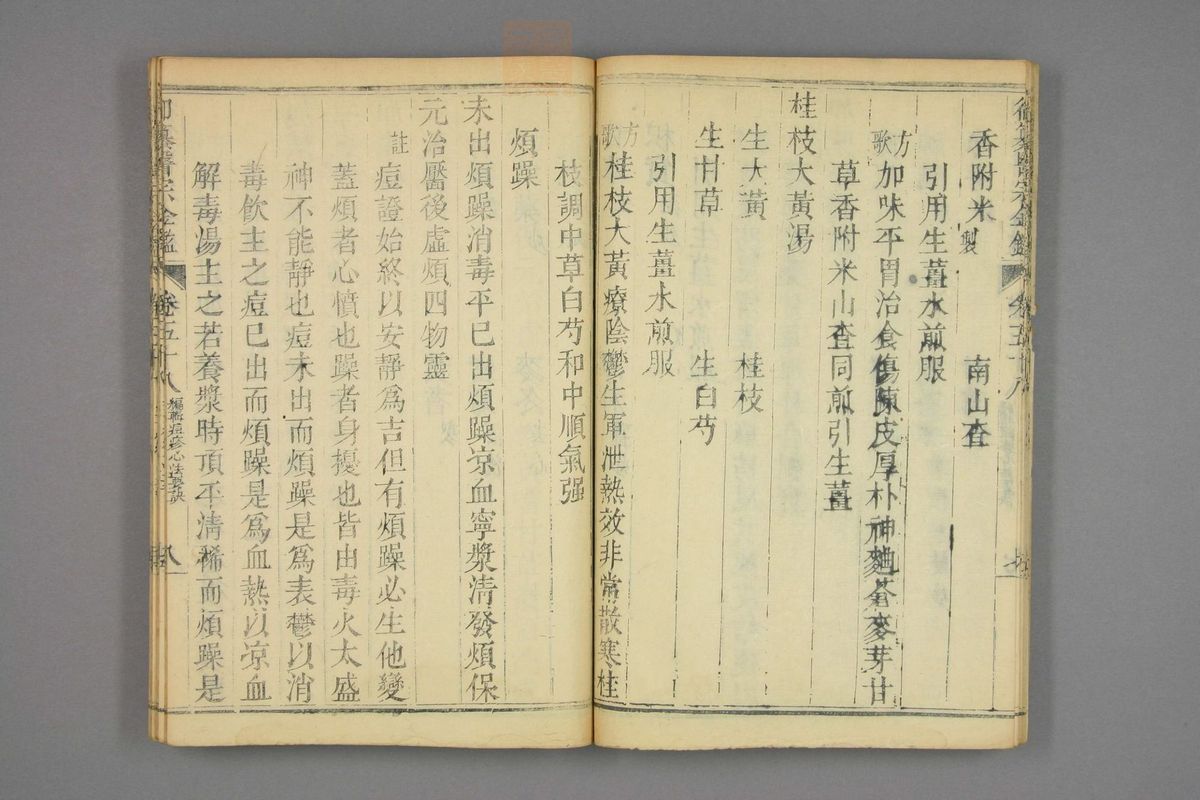 香附米 製 南山查
引用生薑水煎服
方歌 加味平胃治食傷陳皮厚朴神麯蒼麥芽甘
草香附米山查同煎引生薑
桂枝大黃湯
生大黃 桂枝
生甘草 生白芍
引用生薑水煎服
方歌 桂枝大黃療陰鬱生軍泄熱效非常散寒桂
枝調中草白芍和中順氣强
煩躁
未出煩躁消毒平已出煩躁凉血寧漿清發煩保
元治靨後虛煩四物靈
註 痘證始終以安靜爲吉但有煩躁必生他變
蓋煩者心憤也躁者身擾也皆由毒火太盛
神不能靜也痘未出而煩躁是爲表鬱以消
毒飲主之痘已出而煩躁是爲血熱以凉血
解毒湯主之若養漿時頂平清稀而煩躁是
御纂醫宗金鑑 卷五十八 編輯痘疹心法要訣 八